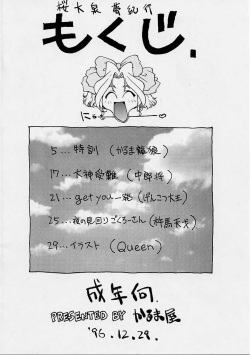 桜大泉 夢紀行
もくじ.
5...特訓 (かるま龍狼)
17...大神受難 (中郎将)
21...get you一発 (げんこつ大王)
25...夜の見回りごくろーさん (杵馬未戈)
29...イラスト (Queen)
成年向.
PRESENTED BY かるま屋
'96.12.29.